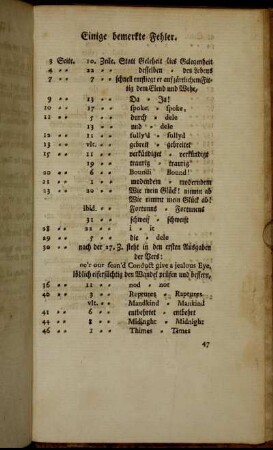 Einige bemerkte Fehler.
3 Seite. 10. Zeile. Statt Geleheit lies Gelegenheit
4 = = 22 = = desselben = des Lebens
7 = = 7 = = schnell entfliegt er auf zärtlichem Fit-
tig dem Elend und Wehe,
9 = = 13 = = Da = Ja!
10 = = 17 = = spoke: = spoke,
12 = = 5 = = durch = dele
13 = = und = dele
12 = = 31 = = sully'd = fullyd
13 = = vlt. = = gebeit = gebreitet
15 = = 11 = = verkündiget = verkündigt
19 = = traurig = traurig
20 = = 6 = = Bounds = Bound
21 = = 2 = = modendem = moderndem
23 = = 20 = = Wie mein Glück! nimmt ab
Wie nimmt mein Glück ab!
ibid. = = Fortunns = Fortunens
31 = = schweif = schweift
28 = = 22 = = i = it
29 = = 5 = = die = dele
30 = = nach der 17. Z. fehlt in den ersten Ausgaben
der Vers:
o'er our form'd Conduct give a jealous Eye,
löblich eifersüchtig den Wandel prüfen und bessern,
36 = = 11 = = nod = not
42 = = 3 = = Raptures = Raptures
vlt. = = Mandkind = Mankind
41 = = 6 = = entbehrtet = entbehrt
44 = = 8 = = Midinght = Midnight
46 = = 2 = = Thimes = Times
47